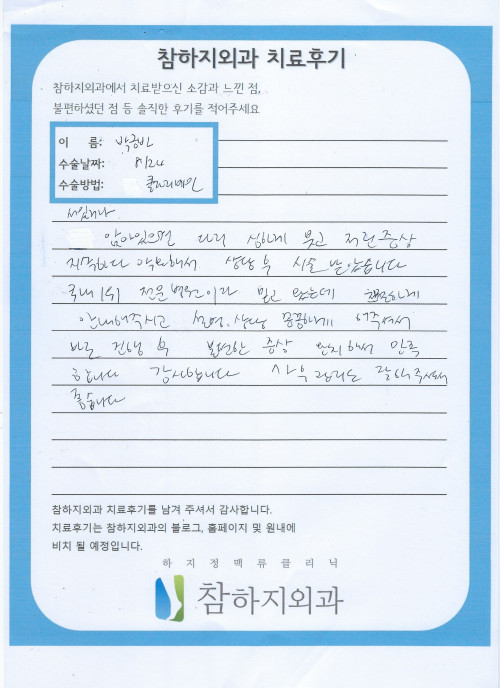 참하지외과 치료후기
참하지외과에서 치료받으신 소감과 느낀 점,
불편하셨던 점 등 솔직한 후기를 적어주세요
이 름:
수술날짜: 8/24
수술방법: 클라리베인
앉아있으면 다리 심하게 붓고 저런증상
상담 후 시술 받았습니다
국내 1위 전문병원이라 믿고 왔는데
안내해주시고 설명, 상담 꼼꼼하게 해주셔서
바로 진행 후 불편한 증상 만족
합니다 감사합니다 사후관리도 잘해주셔서
좋습니다
참하지외과 치료후기를 남겨 주셔서 감사합니다.
치료후기는 참하지외과의 블로그, 홈페이지 및 원내에
비치 될 예정입니다.
하지정맥류클리닉
참하지외과